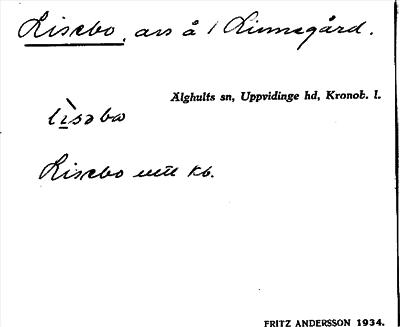 Lisebo, avs å 1 Linnegård.
Älghults sn, Uppvidinge hd, Kronob. l.
lìsəbω
Lisebo enl kb.
FRITZ ANDERSSON 1934.